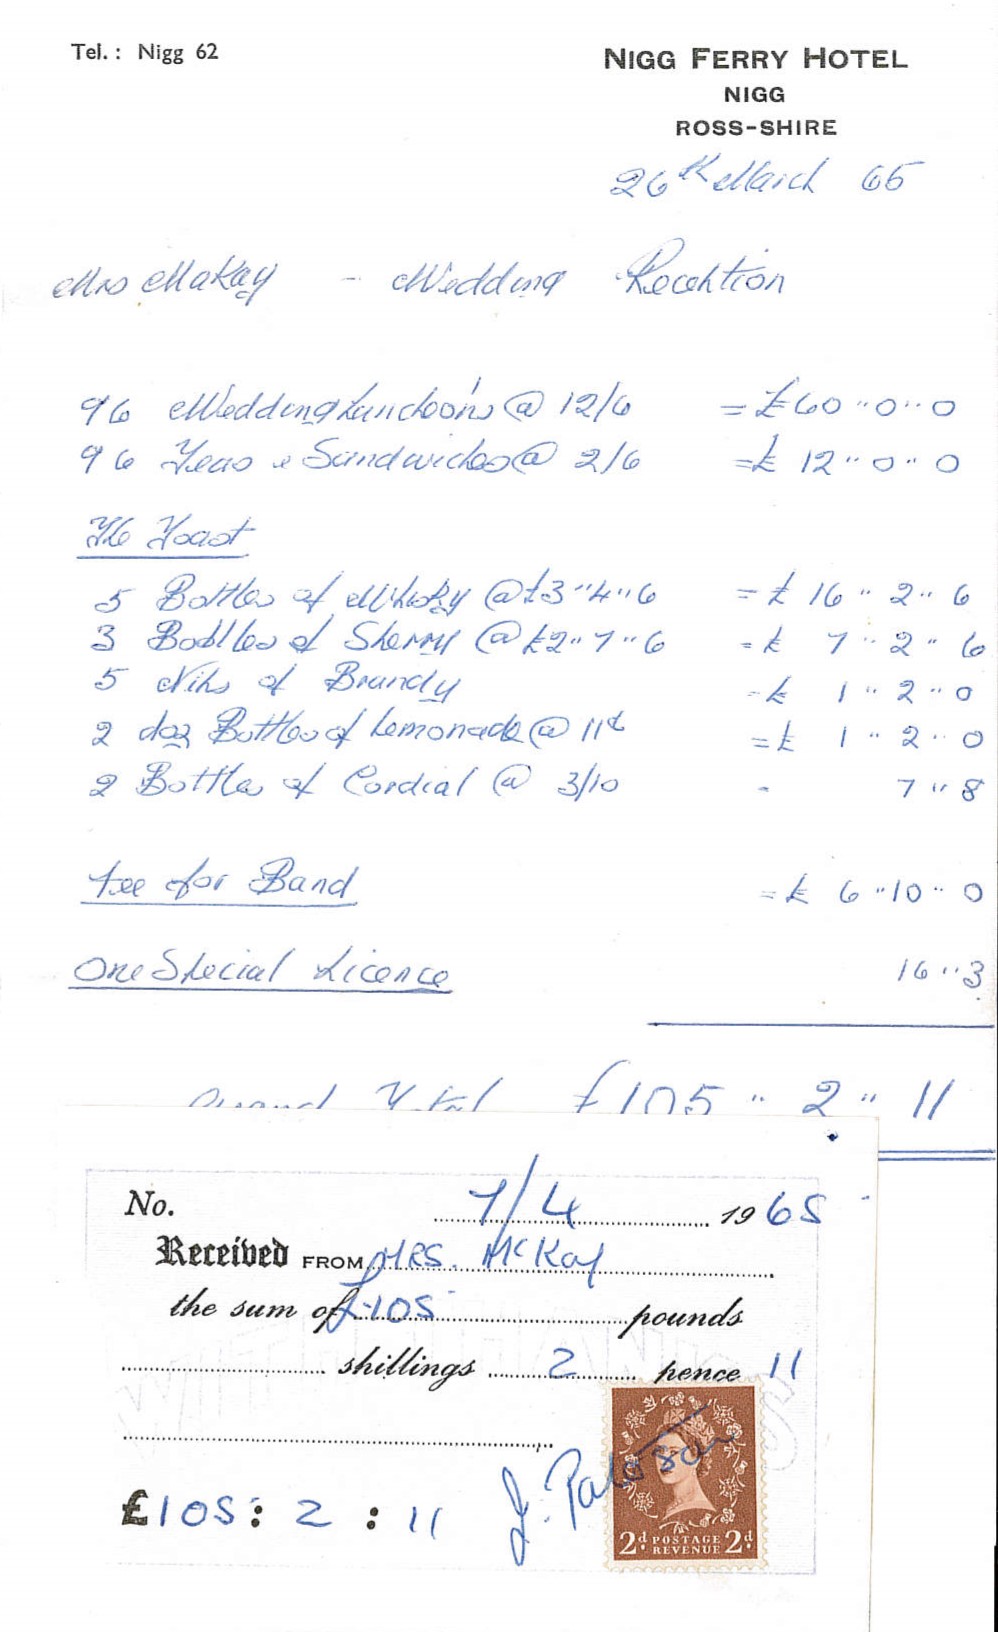 Tel. : Nigg 62
NIGG FERRY HOTEL
NIGG
ROSS-SHIRE
26th March 65
Mrs MaKay - Wedding Reception
96 Wedding Luncheons @ 12/6 = £60 " 0 " 0
96 Teas & Sandwiches @ 2/6 = £ 12 " 0 " 0
The Toast
5 Bottles of Whisky @ £3 " 4 " 6 = £ 16 " 2 " 6
3 Bottles of Sherry @ £2 " 7 " 6 = £ 7 " 2 " 6
5 Nips of Brandy = £ 1 " 2 " 0
2 doz Bottles of Lemonade @ 11d = £ 1 " 2 " 0
2 Bottles of Cordial @ 3/10 - 7 " 8
Fee for Band = £ 6 " 10 " 0
One Special Licence 16 " 3
Grand Total £105 " 2 " 11
No. 7/4 1965
Received FROM MRS. McKay
the sum of £105 pounds
shillings 2 pence 11
£105 : 2 : 11 J.
2d POSTAGE REVENUE 2d